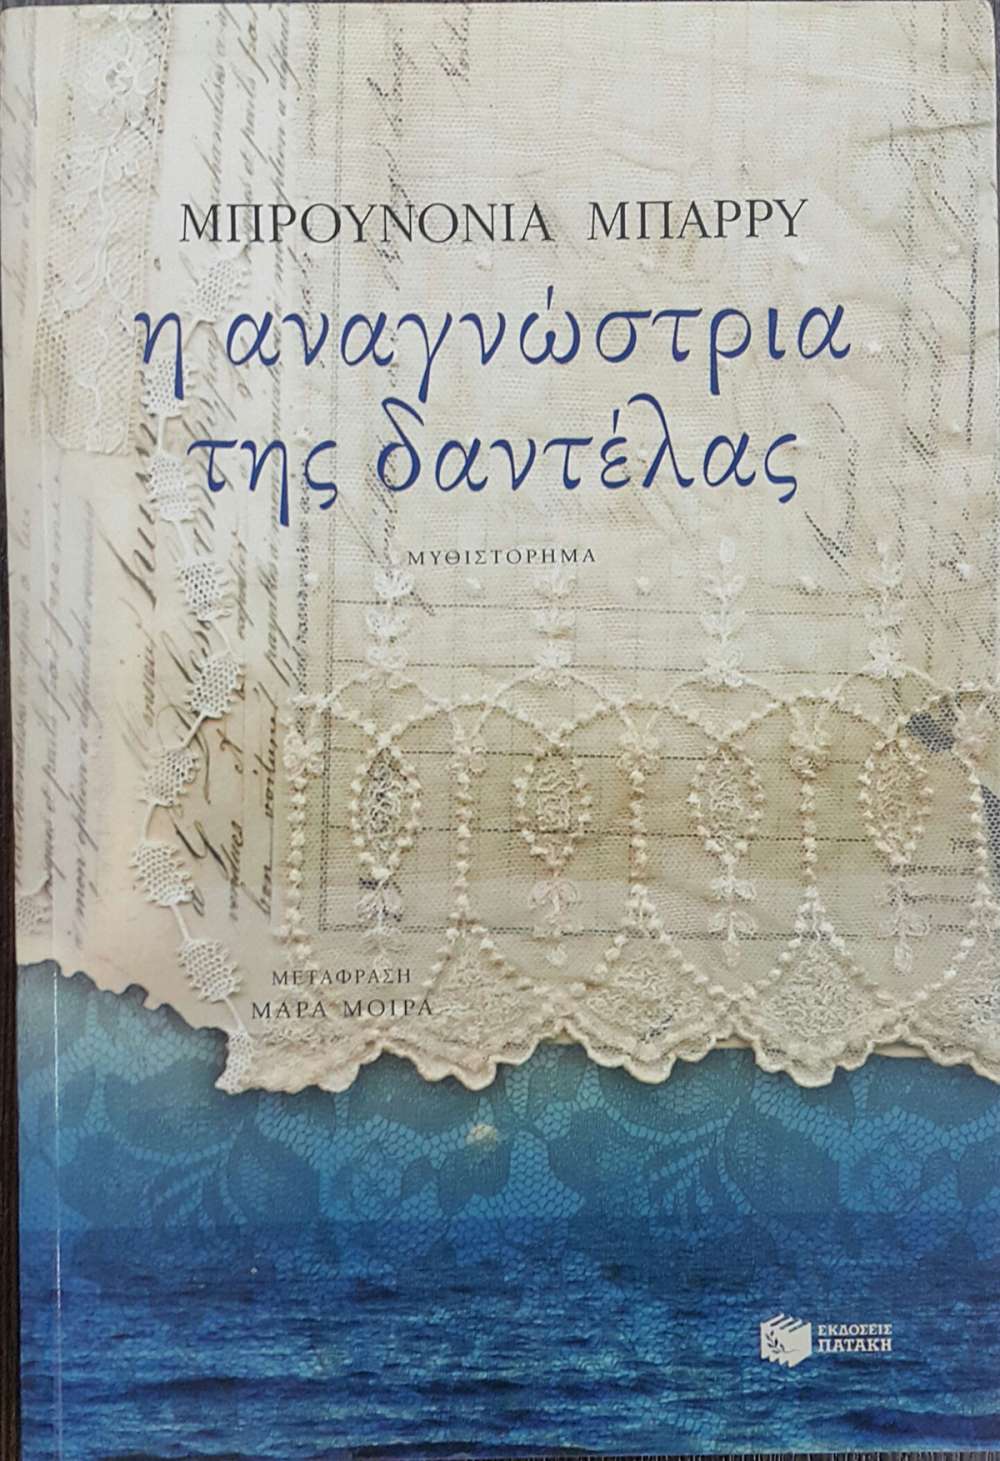 ΜΠΡΟΥΝΟΝΙΑ ΜΠΑΡΡΥ
η αναγνώστρια
της δαντέλας
ΜΥΘΙΣΤΟΡΗΜΑ
ΜΕΤΑΦΡΑΣΗ
ΜΑΡΑ ΜΟΙΡΑ
ΕΚΔΟΣΕΙΣ
ΠΑΤΑΚΗ